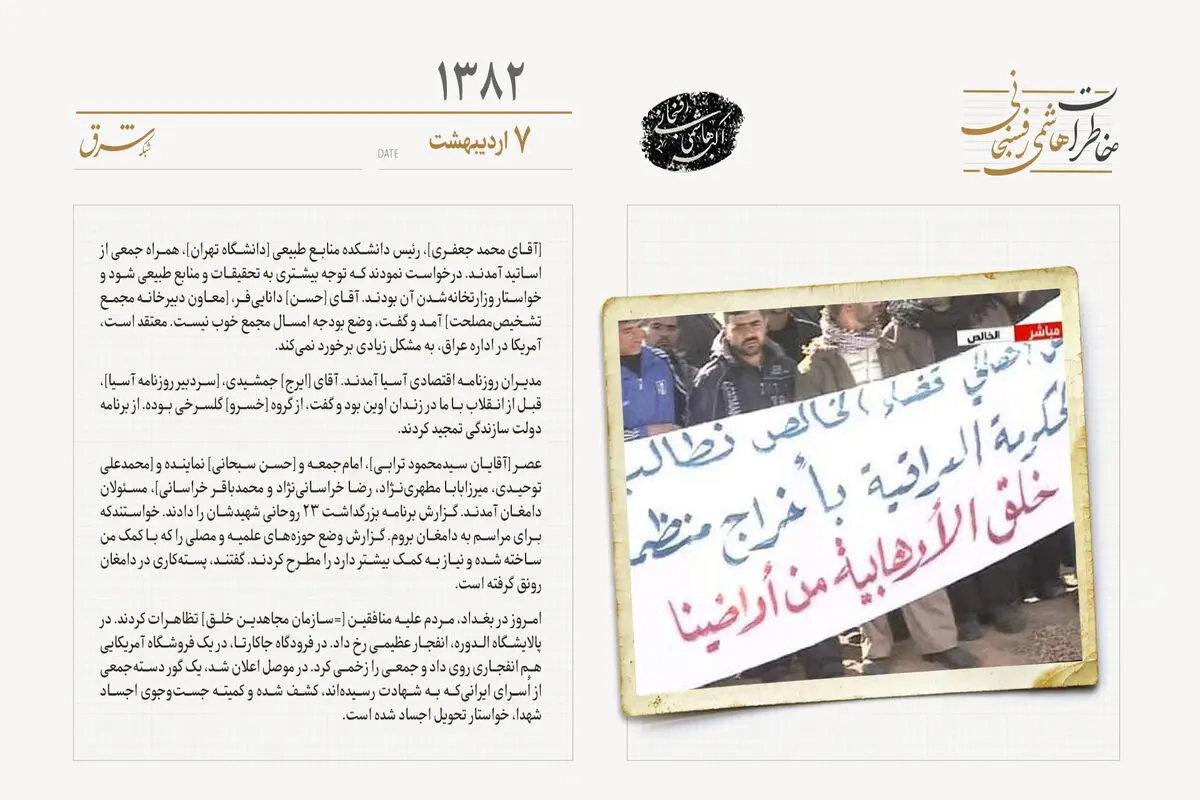 خاطرات
هاشمی رفسنجانی
اکبر هاشمی رفسنجانی
۱۳۸۲
۷ اردیبهشت
DATE
شبکه شرق
[آقای محمد جعفری]، رئیس دانشکده منابع طبیعی [دانشگاه تهران]، همراه جمعی از
اساتید آمدند. درخواست نمودند که توجه بیشتری به تحقیقات و منابع طبیعی شود و
خواستار وزارتخانه‌شدن آن بودند. آقای [حسن] دانایی‌فر، [معاون دبیرخانه مجمع
تشخیص‌مصلحت] آمد و گفت، وضع بودجه امسال مجمع خوب نیست. معتقد است،
آمریکا در اداره عراق، به مشکل زیادی برخورد نمی‌کند.
مدیران روزنامه اقتصادی آسیا آمدند. آقای [ایرج] جمشیدی، [سردبیر روزنامه آسیا]،
قبل از انقلاب با ما در زندان اوین بود و گفت، از گروه [خسرو] گلسرخی بوده. از برنامه
دولت سازندگی تمجید کردند.
عصر [آقایان سیدمحمود ترابی]، امام‌جمعه و [حسن سبحانی] نماینده و [محمدعلی
توحیدی، میرزابابا مطهری‌نژاد، رضا خراسانی‌نژاد و محمدباقر خراسانی]، مسئولان
دامغان آمدند. گزارش برنامه بزرگداشت ۲۳ روحانی شهیدشان را دادند. خواستندکه
برای مراسم به دامغان بروم. گزارش وضع حوزه‌های علمیه و مصلی را که با کمک من
ساخته شده و نیاز به کمک بیشتر دارد را مطرح کردند. گفتند، پسته‌کاری در دامغان
رونق گرفته است.
امروز در بغداد، مردم علیه منافقین [=سازمان مجاهدین خلق] تظاهرات کردند. در
پالایشگاه الدوره، انفجار عظیمی رخ داد. در فرودگاه جاکارتا، در یک فروشگاه آمریکایی
هم انفجاری روی داد و جمعی را زخمی کرد. در موصل اعلان شد، یک گور دسته‌جمعی
از اُسرای ایرانی‌که به شهادت رسیده‌اند، کشف شده و کمیته جست‌وجوی اجساد
شهدا، خواستار تحویل اجساد شده است.
مباشر
الخالص
أهالي قضاء الخالص نطالب
الحكومة العراقية بأخراج منظمة
خلق الأرهابية من أراضينا